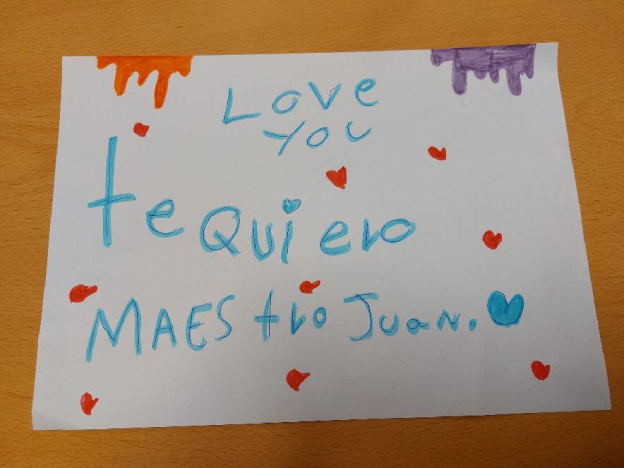 Love
You
te Quiero
MAEStro Juan.